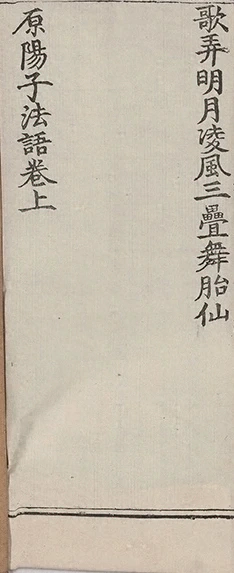 歌弄明月淩風三疊舞胎仙
原陽子法語卷上